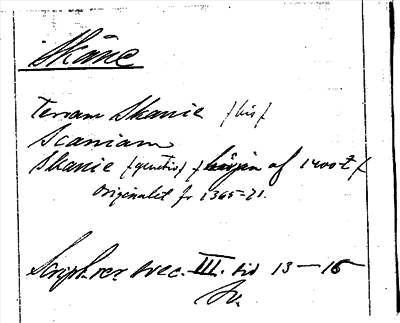 Skåne
Terram Skanie /bis/
Scaniam
Skanie /genetiv/ / början af 1400-t /
Originalet fr 1365-71.
Script. rer. svec. III. sid 13-16